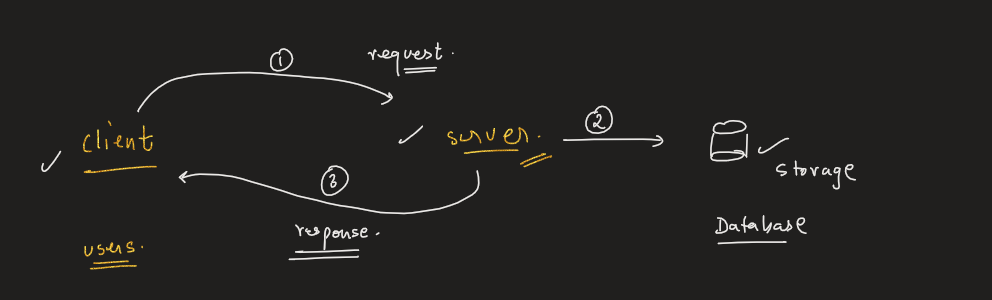 ①
request.
client
server.
②
storage
③
response.
Database
users.